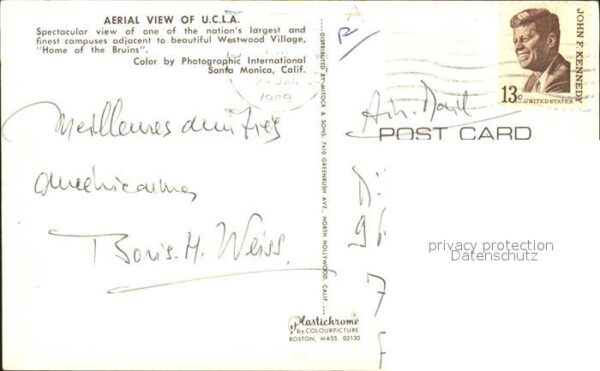 AERIAL VIEW OF U.C.L.A.
Spectacular view of one of the nation's largest and
finest campuses adjacent to beautiful Westwood Village,
"Home of the Bruins".
Color by Photographic International
Santa Monica, Calif.
1969
Meilleures amitiés
américaines
Boris. H. Weiss.
DISTRIBUTED BY MITOCK & SONS, 7410 GREENBUSH AVE., NORTH HOLLYWOOD, CALIF.
Plastichrome
by COLOURPICTURE
BOSTON, MASS. 02130
JOHN F. KENNEDY
13c
UNITED STATES
Air Mail
POST CARD
D.
96
7
privacy protection
Datenschutz